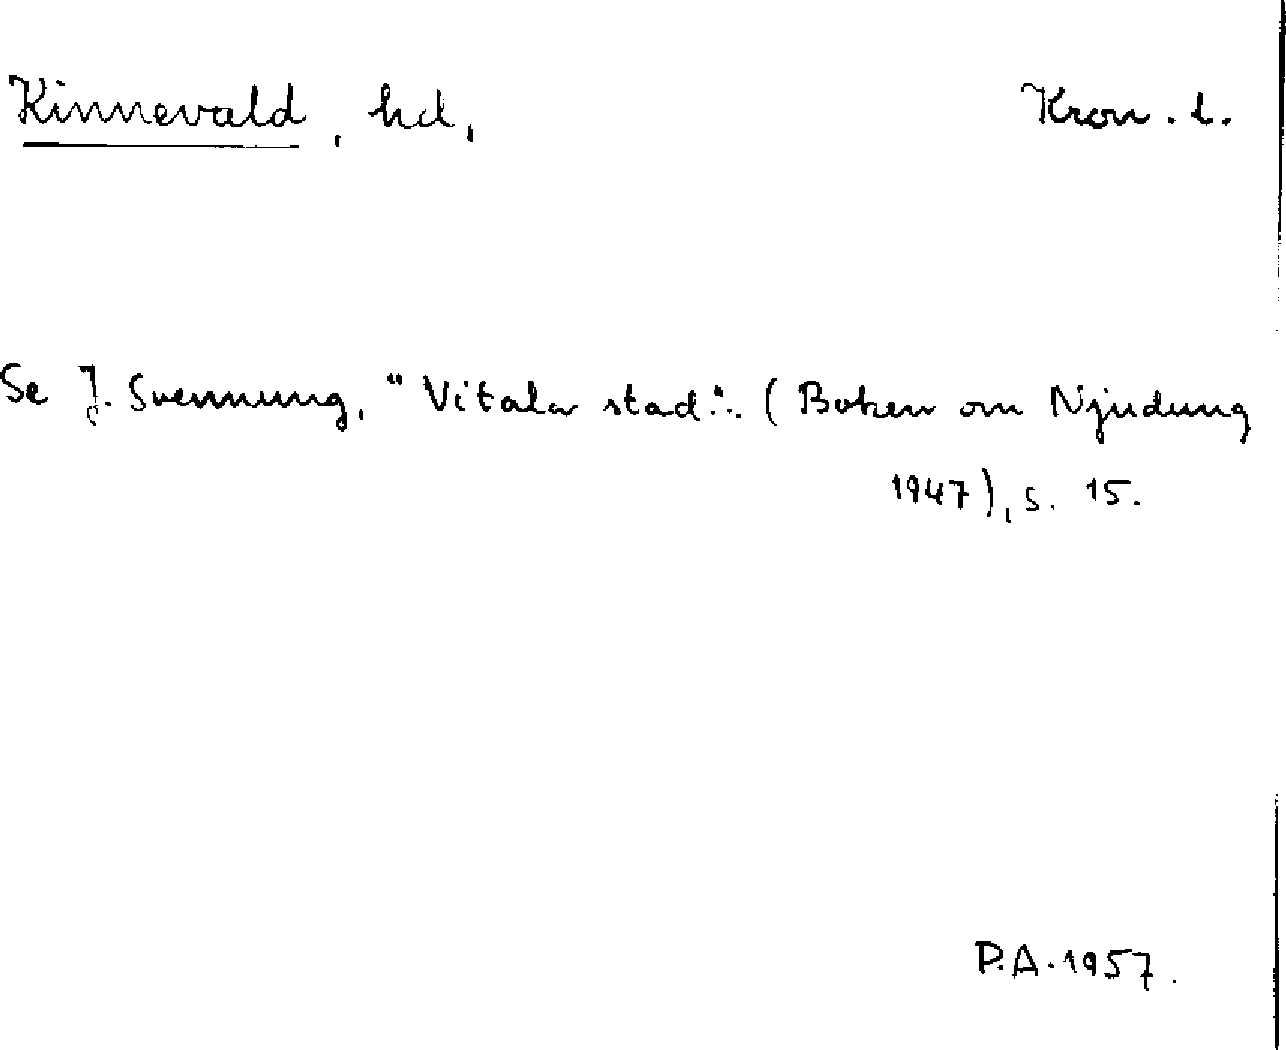 Kinnevald, hd, Kron. l.
Se J. Svennung, "Vitala stad". (Boken om Njudung
1947), s. 15.
P.A. 1957.